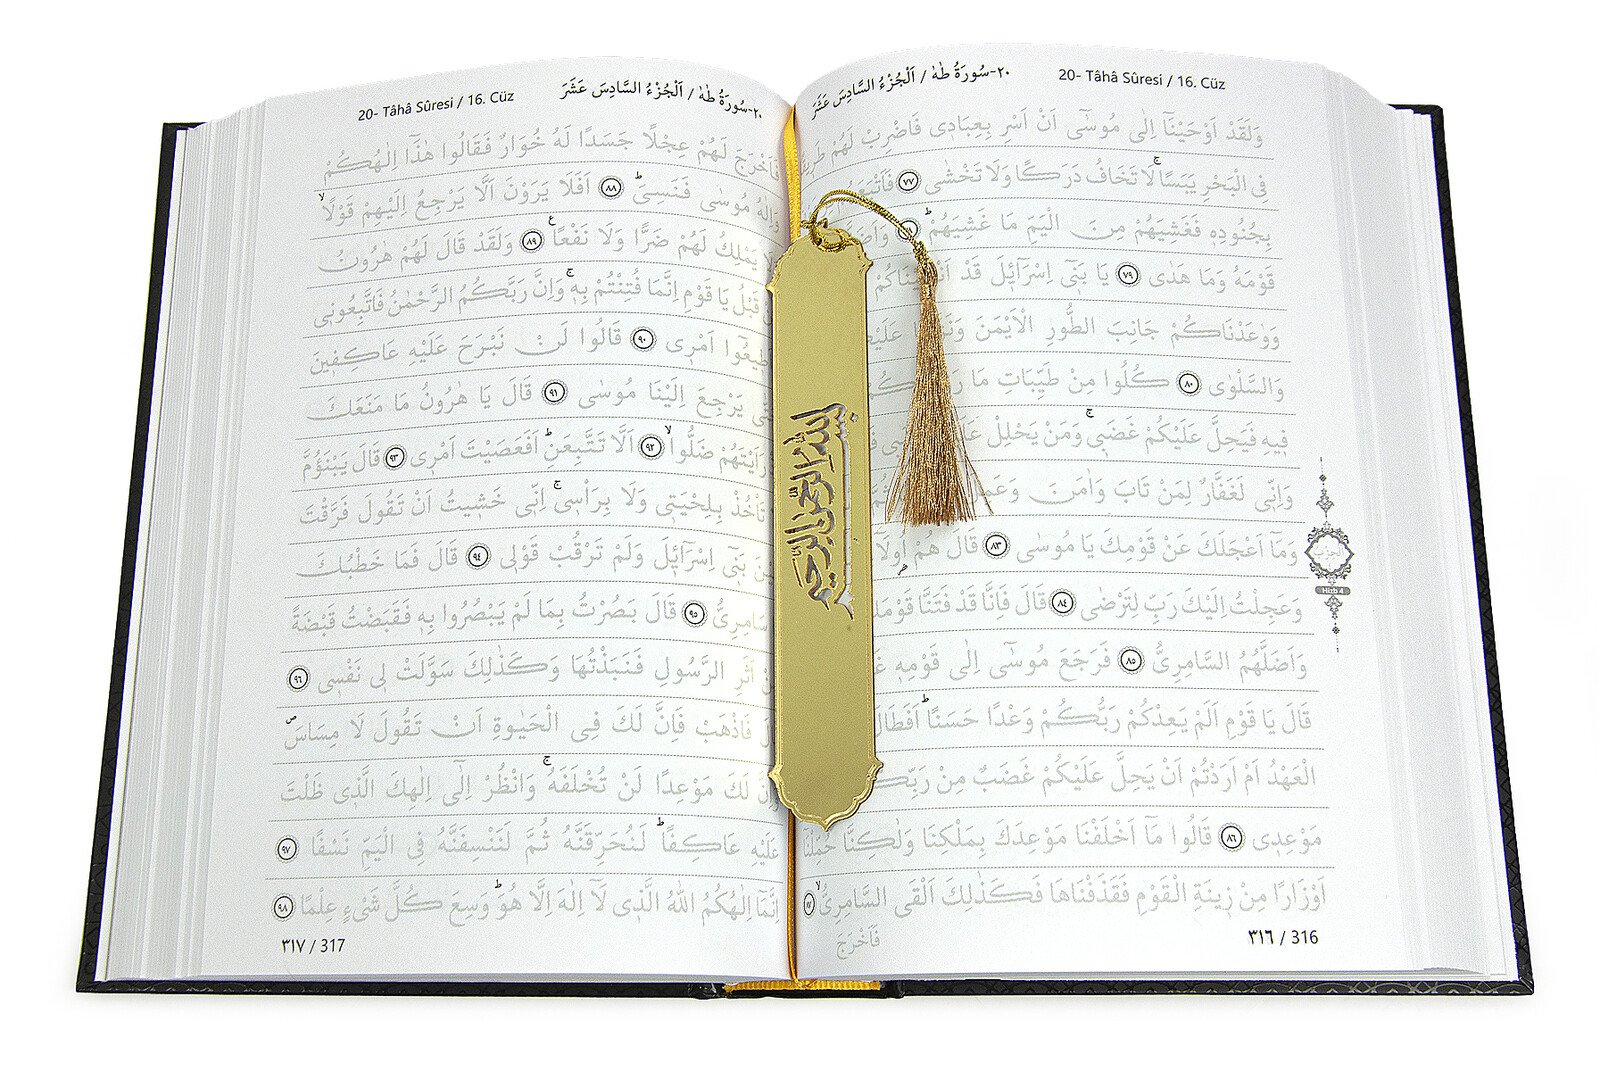 ٢٠-سُورَةُ طٰهٰ / اَلْجُزْءُ السَّادِسَ عَشَرَ 20- Tâhâ Sûresi / 16. Cüz
وَلَقَدْ اَوْحَيْنَٓا اِلٰى مُوسٰٓى اَنْ اَسْرِ بِعِبَادٖى فَاضْرِبْ لَهُمْ
فِى الْبَحْرِ يَبَسًاۚ لَا تَخَافُ دَرَكًا وَلَا تَخْشٰى ﴿٧٧﴾
بِجُنُودِهٖ فَغَشِيَهُمْ مِنَ الْيَمِّ مَا غَشِيَهُمْۜ
قَوْمَهُ وَمَا هَدٰى ﴿٧٩﴾ يَا بَنٖٓى اِسْرَٓائٖلَ قَدْ
وَوٰعَدْنَاكُمْ جَانِبَ الطُّورِ الْاَيْمَنَ
وَالسَّلْوٰى ﴿٨٠﴾ كُلُوا مِنْ طَيِّبَاتِ مَا
فٖيهِ فَيَحِلَّ عَلَيْكُمْ غَضَبٖىۚ وَمَنْ يَحْلِلْ
وَاِنّٖى لَغَفَّارٌ لِمَنْ تَابَ وَاٰمَنَ
وَمَٓا اَعْجَلَكَ عَنْ قَوْمِكَ يَا مُوسٰى ﴿٨٣﴾ قَالَ هُمْ
وَعَجِلْتُ اِلَيْكَ رَبِّ لِتَرْضٰى ﴿٨٤﴾ قَالَ فَاِنَّا قَدْ فَتَنَّا
وَاَضَلَّهُمُ السَّامِرِىُّ ﴿٨٥﴾ فَرَجَعَ مُوسٰٓى اِلٰى قَوْمِهٖ
قَالَ يَا قَوْمِ اَلَمْ يَعِدْكُمْ رَبُّكُمْ وَعْدًا حَسَنًاۜ اَفَطَالَ
الْعَهْدُ اَمْ اَرَدْتُمْ اَنْ يَحِلَّ عَلَيْكُمْ غَضَبٌ مِنْ
مَوْعِدٖى ﴿٨٦﴾ قَالُوا مَٓا اَخْلَفْنَا مَوْعِدَكَ بِمَلْكِنَا وَلٰكِنَّا حُمِّلْنَٓا
اَوْزَارًا مِنْ زٖينَةِ الْقَوْمِ فَقَذَفْنَاهَا فَكَذٰلِكَ اَلْقَى السَّامِرِىُّۙ ﴿٨٧﴾
فَاَخْرَجَ
٣١٦ / 316
الحزب
Hizb 4
20- Tâhâ Sûresi / 16. Cüz ٢٠-سُورَةُ طٰهٰ / اَلْجُزْءُ السَّادِسَ عَشَرَ
فَاَخْرَجَ لَهُمْ عِجْلًا جَسَدًا لَهُ خُوَارٌ فَقَالُوا هٰذَٓا اِلٰهُكُمْ
وَاِلٰهُ مُوسٰى فَنَسِىَۜ ﴿٨٨﴾ اَفَلَا يَرَوْنَ اَلَّا يَرْجِعُ اِلَيْهِمْ قَوْلًاۙ
يَمْلِكُ لَهُمْ ضَرًّا وَلَا نَفْعًا ﴿٨٩﴾ وَلَقَدْ قَالَ لَهُمْ هٰرُونُ
قَبْلُ يَا قَوْمِ اِنَّمَا فُتِنْتُمْ بِهٖۚ وَاِنَّ رَبَّكُمُ الرَّحْمٰنُ فَاتَّبِعُونٖى
اَمْرٖى ﴿٩٠﴾ قَالُوا لَنْ نَبْرَحَ عَلَيْهِ عَاكِفٖينَ
يَرْجِعَ اِلَيْنَا مُوسٰى ﴿٩١﴾ قَالَ يَا هٰرُونُ مَا مَنَعَكَ
رَاَيْتَهُمْ ضَلُّواۙ ﴿٩٢﴾ اَلَّا تَتَّبِعَنِۜ اَفَعَصَيْتَ اَمْرٖى ﴿٩٣﴾ قَالَ يَبْنَؤُمَّ
تَأْخُذْ بِلِحْيَتٖى وَلَا بِرَأْسٖىۚ اِنّٖى خَشٖيتُ اَنْ تَقُولَ فَرَّقْتَ
بَنٖٓى اِسْرَٓائٖلَ وَلَمْ تَرْقُبْ قَوْلٖى ﴿٩٤﴾ قَالَ فَمَا خَطْبُكَ
﴿٩٥﴾ قَالَ بَصُرْتُ بِمَا لَمْ يَبْصُرُوا بِهٖ فَقَبَضْتُ قَبْضَةً
اَثَرِ الرَّسُولِ فَنَبَذْتُهَا وَكَذٰلِكَ سَوَّلَتْ لٖى نَفْسٖى ﴿٩٦﴾
فَاذْهَبْ فَاِنَّ لَكَ فِى الْحَيٰوةِ اَنْ تَقُولَ لَا مِسَاسَ
لَكَ مَوْعِدًا لَنْ تُخْلَفَهُۚ وَانْظُرْ اِلٰٓى اِلٰهِكَ الَّذٖى ظَلْتَ
عَلَيْهِ عَاكِفًاۜ لَنُحَرِّقَنَّهُ ثُمَّ لَنَنْسِفَنَّهُ فِى الْيَمِّ نَسْفًا ﴿٩٧﴾
اِنَّمَٓا اِلٰهُكُمُ اللّٰهُ الَّذٖى لَٓا اِلٰهَ اِلَّا هُوَۜ وَسِعَ كُلَّ شَىْءٍ عِلْمًا ﴿٩٨﴾
٣١٧ / 317
بسم الله الرحمن الرحيم